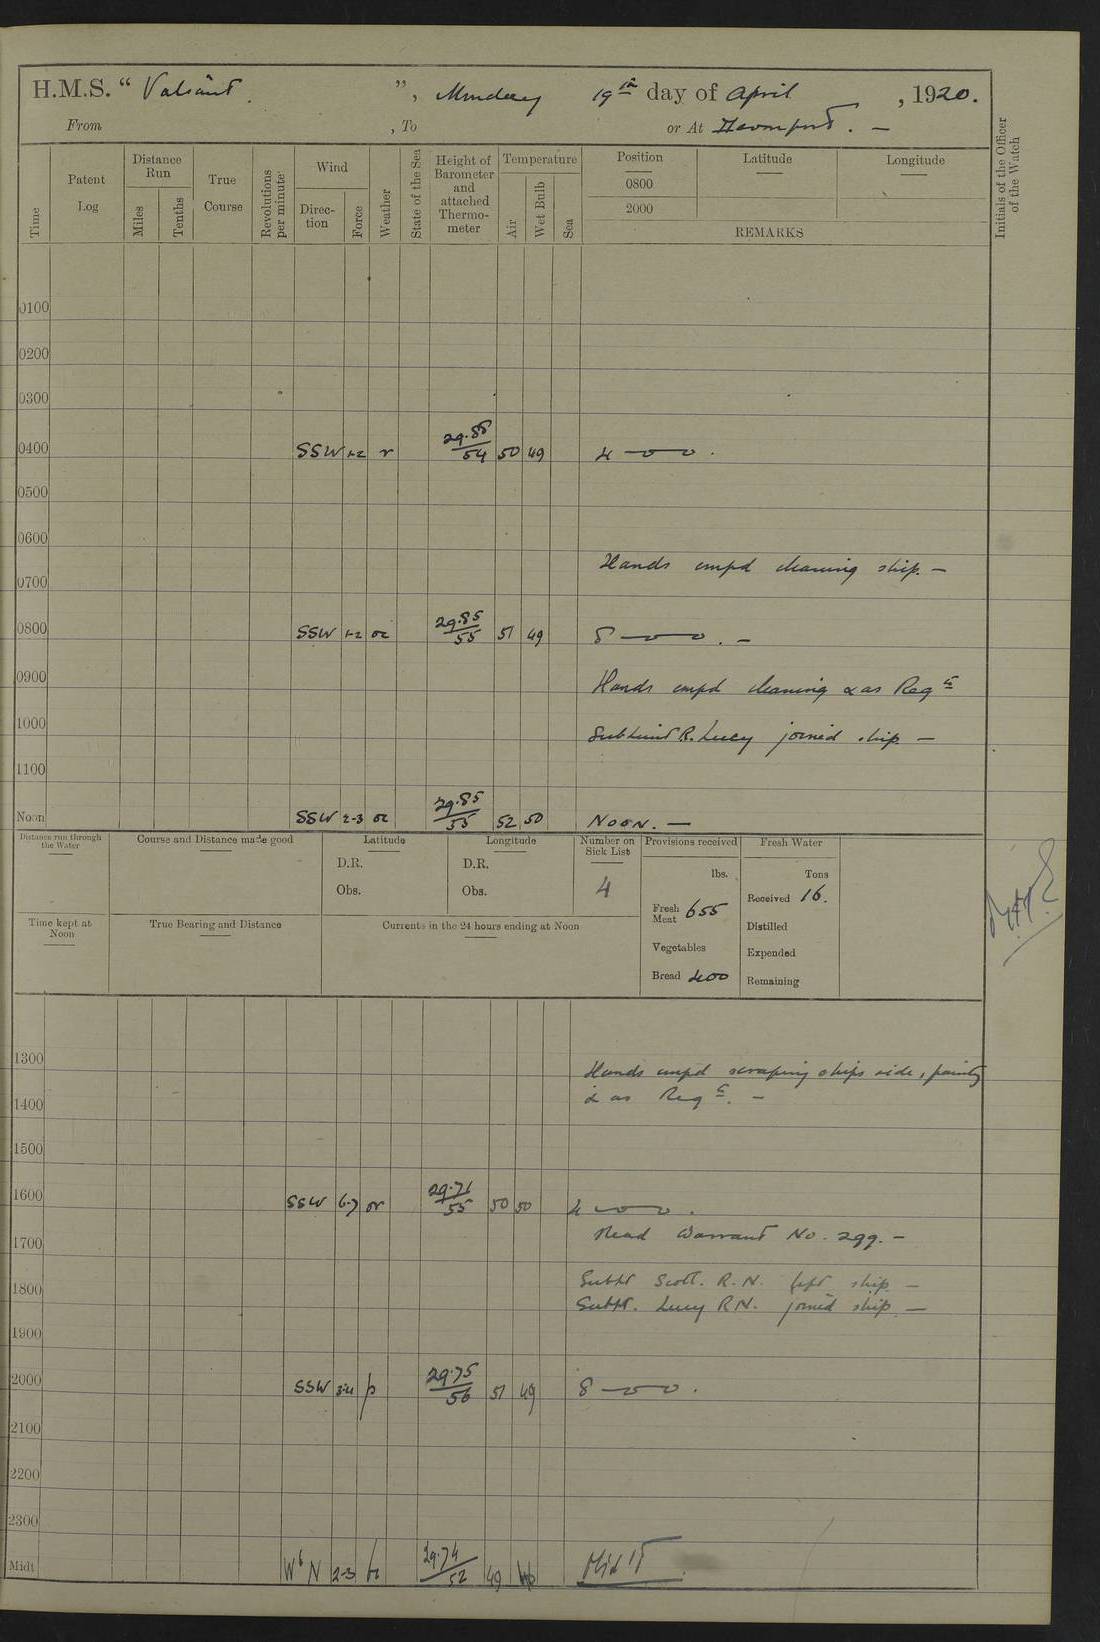 H.M.S. " Valiant ", Monday 19th day of April, 1920.
From , To or At Devonport. —
Time
Patent Log
Distance Run
Miles
Tenths
True Course
Revolutions per minute
Wind
Direction
Force
Weather
State of the Sea
Height of Barometer and attached Thermometer
Temperature
Air
Wet Bulb
Sea
Position
0800
2000
Latitude
Longitude
REMARKS
Initials of the Officer of the Watch
0100
0200
0300
0400 SSW 1-2 r 29.88/54 50 49 4 — o o .
0500
0600
Hands empd cleaning ship. —
0700
0800 SSW 1-2 oc 29.85/55 51 49 8 — o o . —
0900 Hands empd cleaning & as Reqd
1000 SubLieut R. Lucy joined ship —
1100
Noon SSW 2-3 oc 29.85/55 52 50 NOON. —
Distance run through the Water
Course and Distance made good
Latitude
D.R.
Obs.
Longitude
D.R.
Obs.
Number on Sick List
4
Provisions received
lbs.
Fresh Meat 655
Vegetables
Bread 400
Fresh Water
Tons
Received 16.
Distilled
Expended
Remaining
Time kept at Noon
True Bearing and Distance
Currents in the 24 hours ending at Noon
1300
Hands empd scraping ships side, painting
1400 & as Reqd. —
1500
1600 SSW 6-7 or 29.71/55 50 50 4 — o o .
Read Warrant No. 299. —
1700
Sublt Scott. R.N. left ship —
1800
Sublt. Lucy RN. joined ship —
1900
2000 SSW 3-4 p 29.75/56 51 49 8 — o o .
2100
2200
2300
Midt. W b N 2-3 29.74/52 49 Midt